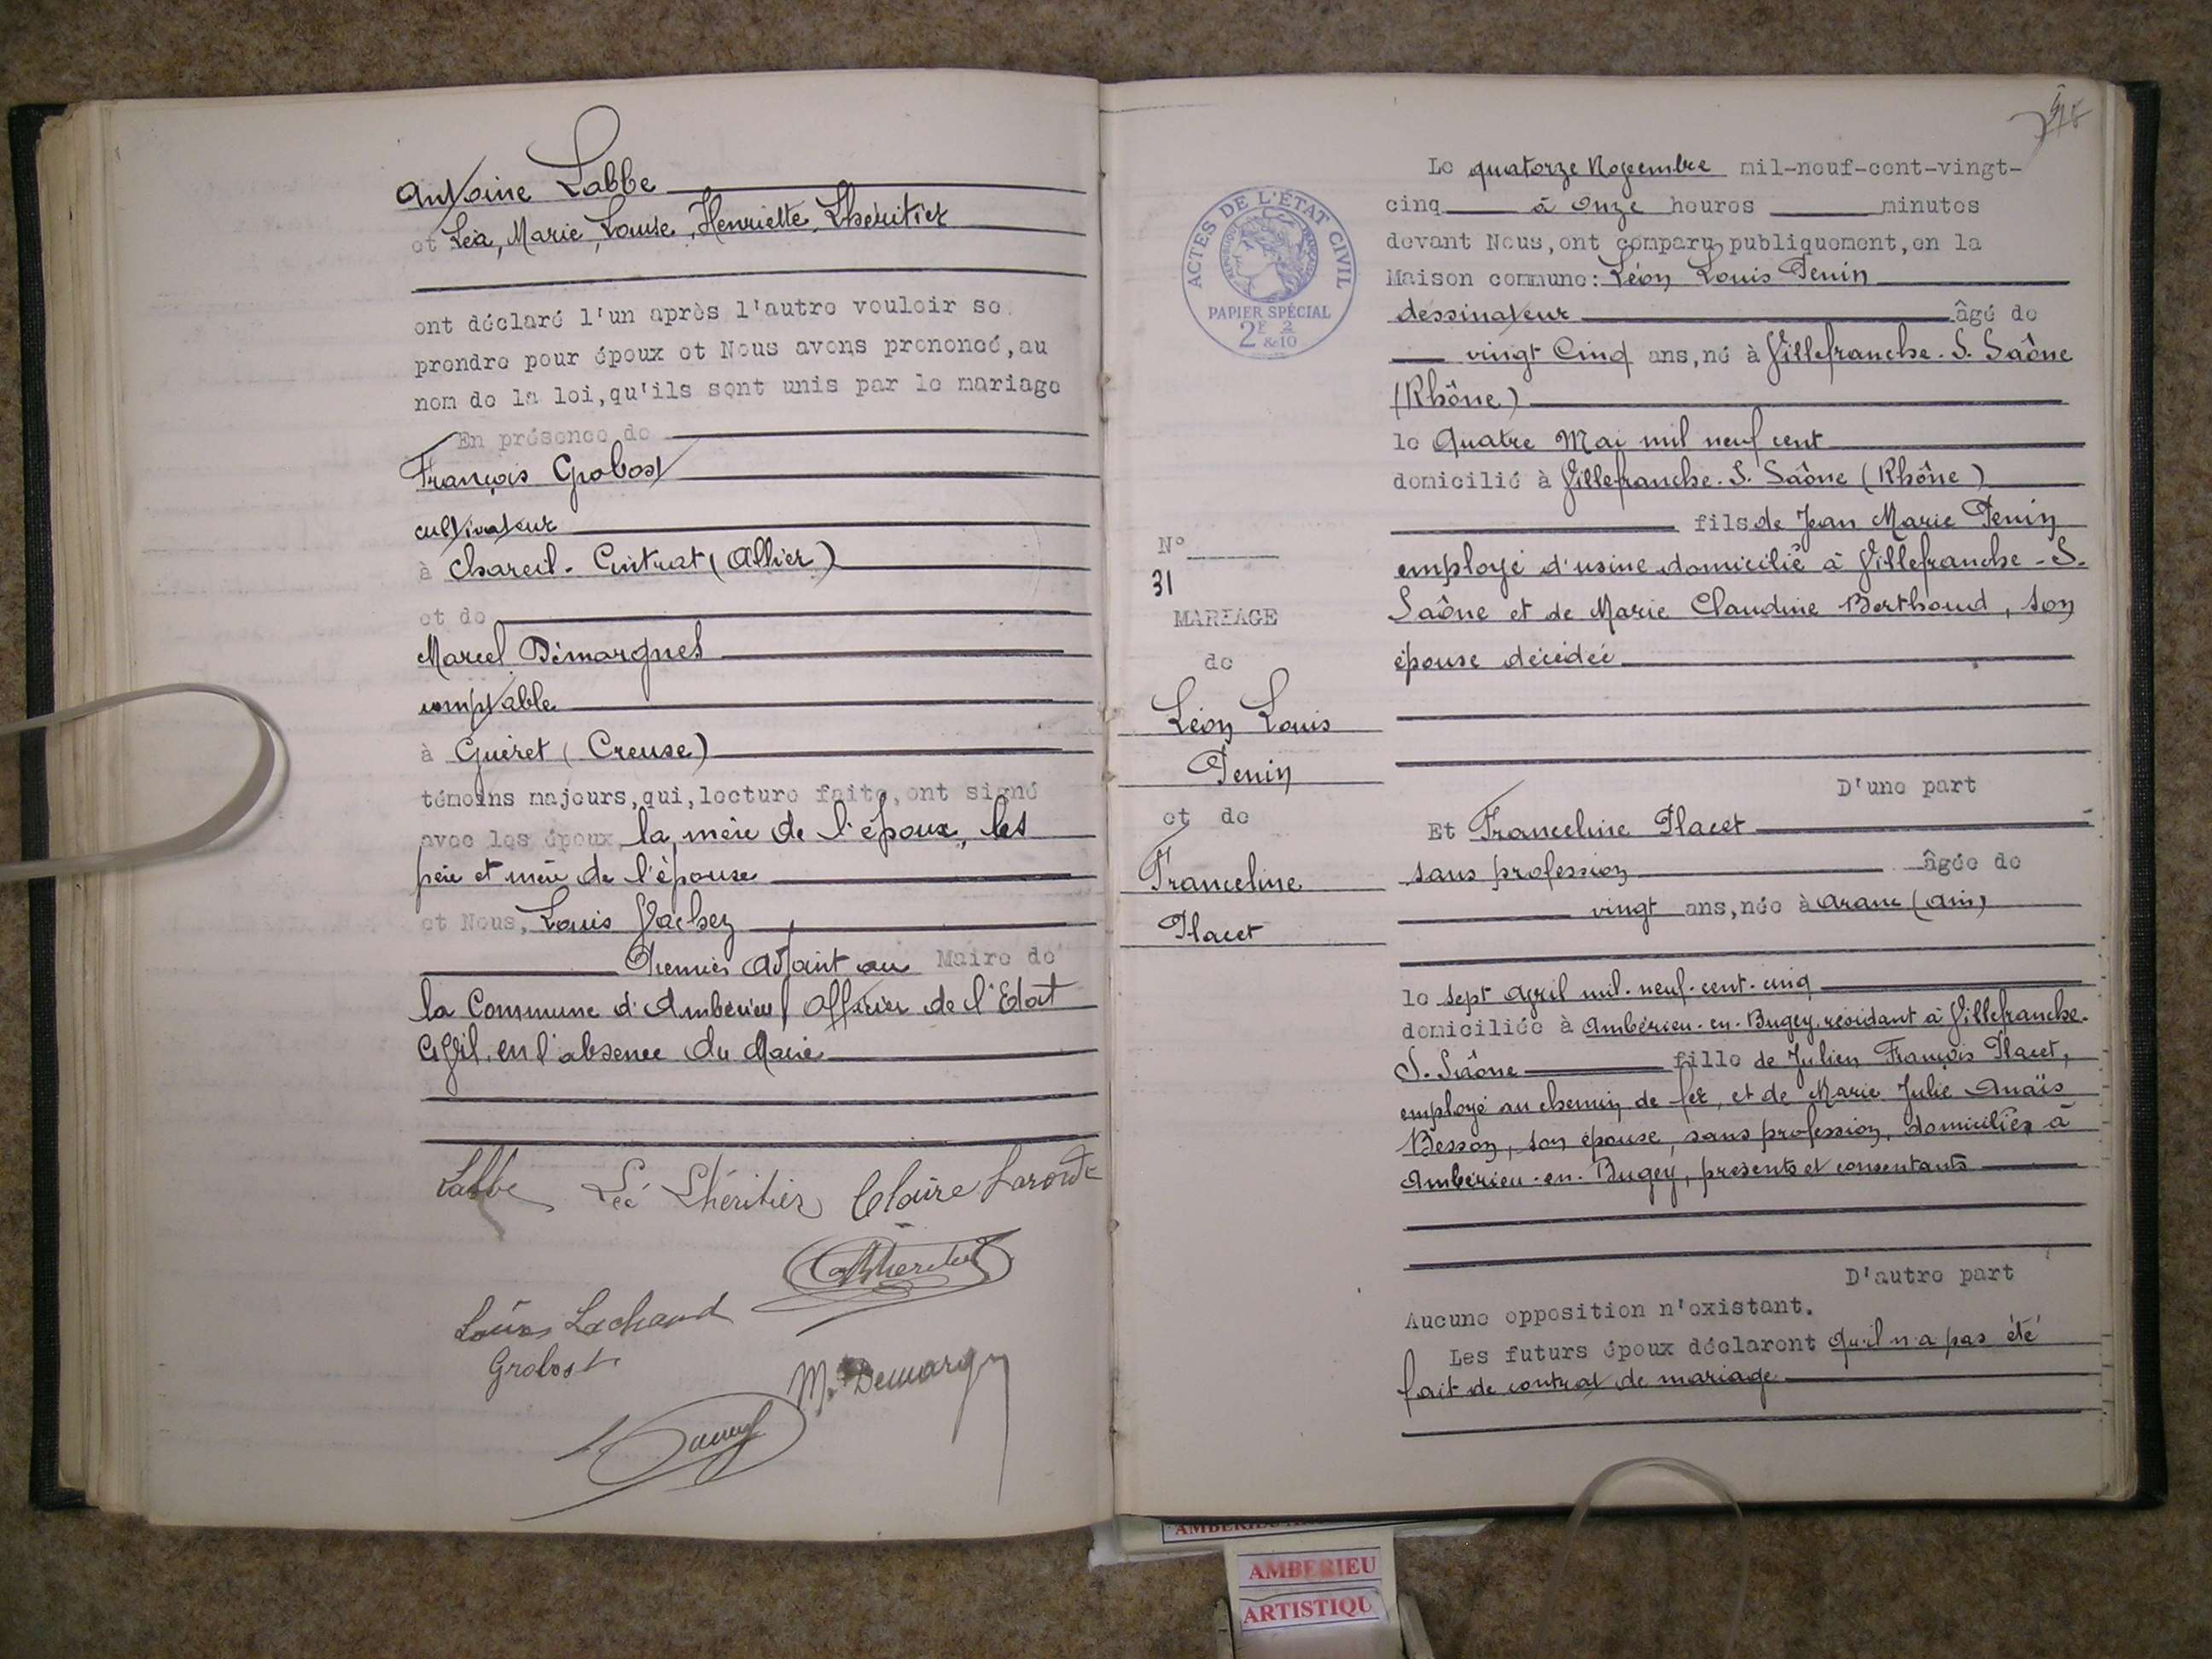 Antoine Labbe
et Léa, Marie, Louise, Henriette, Lhéritier
ont déclaré l'un après l'autre vouloir se
prendre pour époux et Nous avons prononcé, au
nom de la loi, qu'ils sont unis par le mariage
En présence de
François Grobost
cultivateur
à Chareil-Cintrat (Allier)
et de
Marcel Démargnes
comptable
à Guéret (Creuse)
témoins majeurs, qui, lecture faite, ont signé
avec les époux la mère de l'époux, les
père et mère de l'épouse
et Nous, Louis Vachez
Premier Adjoint au Maire de
la Commune d'Ambérieu Officier de l'Etat
Civil, en l'absence du Maire
Labbe Léa Lhéritier Claire Laronde
Lhéritier
Louise Lachaud
Grobost
M. Demargn
ACTES DE L'ÉTAT CIVIL
RÉPUBLIQUE FRANÇAISE
PAPIER SPÉCIAL
2F & 2/10
N°
31
MARIAGE
de
Léon Louis
Penin
et de
Franceline
Placet
Le quatorze Novembre mil-neuf-cent-vingt-
cinq à Onze heures minutes
devant Nous, ont comparu publiquement, en la
Maison commune: Léon Louis Penin
dessinateur âgé de
vingt Cinq ans, né à Villefranche-S. Saône
(Rhône)
le Quatre Mai mil neuf cent
domicilié à Villefranche-S. Saône (Rhône)
fils de Jean Marie Penin
employé d'usine domicilié à Villefranche-S.
Saône et de Marie Claudine Berthoud, son
épouse décédée
D'une part
Et Franceline Placet
sans profession âgée de
vingt ans, née à Aranc (Ain)
le sept Avril mil-neuf-cent-cinq
domiciliée à Ambérieu-en-Bugey, résidant à Villefranche-
S. Saône fille de Julien François Placet,
employé au chemin de fer, et de Marie Julie Anaïs
Besson, son épouse, sans profession, domiciliés à
Ambérieu-en-Bugey, présents et consentants
D'autre part
Aucune opposition n'existant.
Les futurs époux déclarent qu'il n'a pas été
fait de contrat de mariage
AMBERIEU
ARTISTIQU